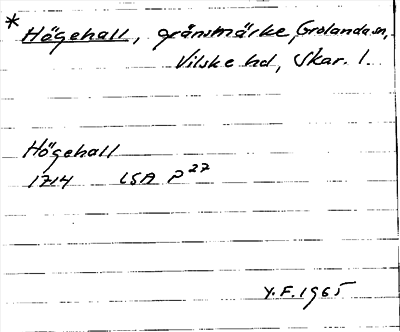 * Högehall, gränsmärke, Grolanda sn,
Vilske hd, Skar. l.
Högehall
1714 LSA P 27
Y.F. 1965